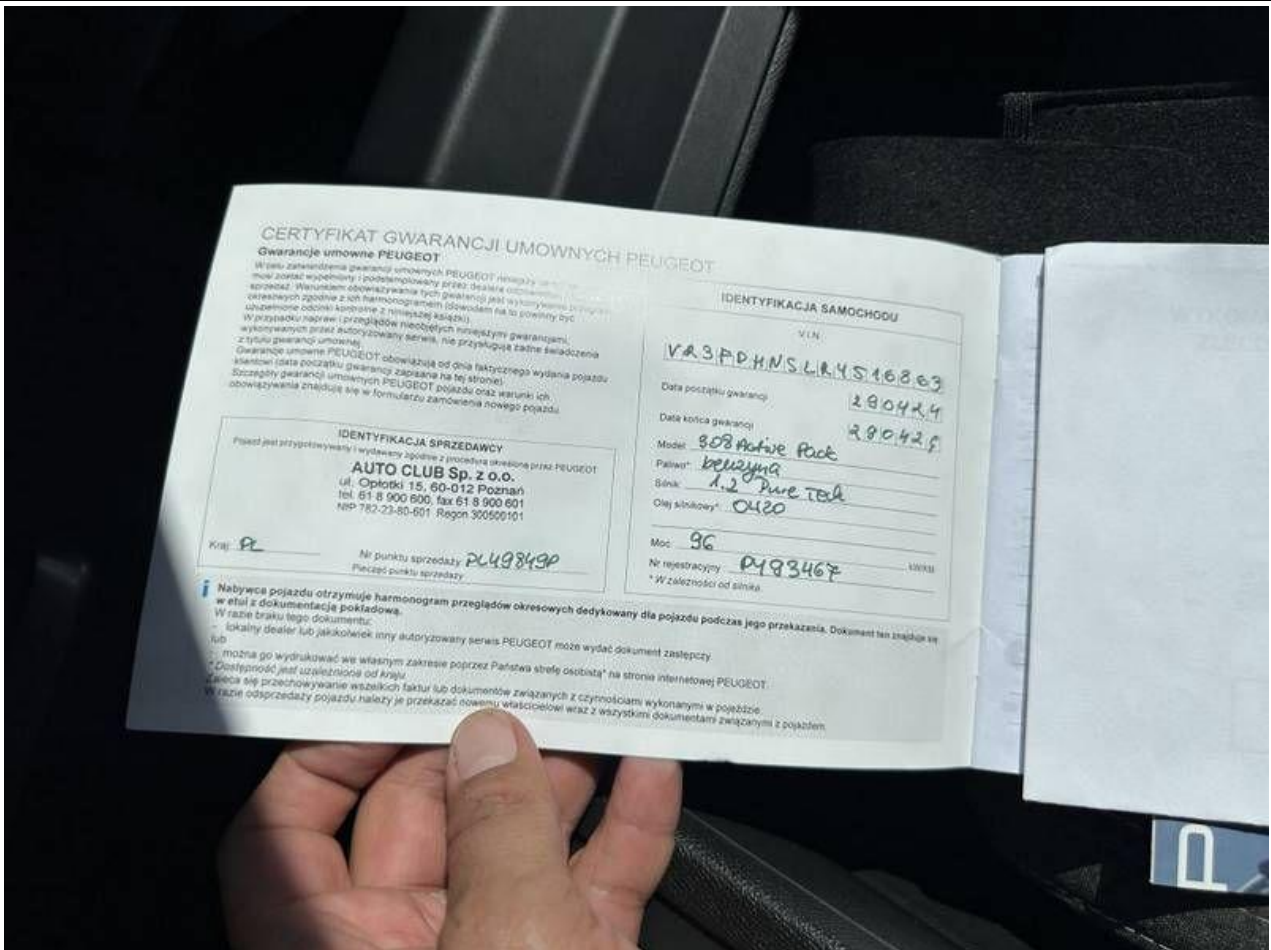 CERTYFIKAT GWARANCJI UMOWNYCH PEUGEOT
Gwarancje umowne PEUGEOT
W celu zatwierdzenia gwarancji umownych PEUGEOT niniejszy
musi zostać wypełniony i podstemplowany przez dealera
sprzedaż. Warunkiem obowiązywania tych gwarancji jest wykonywanie
okresowych zgodnie z ich harmonogramem (dowodem na to powinny być
uzupełnione odcinki kontrolne z niniejszej książki).
W przypadku napraw i przeglądów nieobjętych niniejszymi gwarancjami,
wykonywanych przez autoryzowany serwis, nie przysługują żadne świadczenia
z tytułu gwarancji umownej.
Gwarancje umowne PEUGEOT obowiązują od dnia faktycznego wydania pojazdu
klientowi (data początku gwarancji zapisana na tej stronie).
Szczegóły gwarancji umownych PEUGEOT pojazdu oraz warunki ich
obowiązywania znajdują się w formularzu zamówienia nowego pojazdu.
IDENTYFIKACJA SPRZEDAWCY
Pojazd jest przygotowywany i wydawany zgodnie z procedurą określoną przez PEUGEOT
AUTO CLUB Sp. z o.o.
ul. Opłotki 15, 60-012 Poznań
tel. 61 8 900 600, fax 61 8 900 601
NIP 782-23-80-601 Regon 300500101
Kraj PL
Nr punktu sprzedaży PL49849P
Pieczęć punktu sprzedaży
IDENTYFIKACJA SAMOCHODU
V.I.N.
VR3FPHNSLRY516863
Data początku gwarancji 290424
Data końca gwarancji
Model 308 Active Pack
Paliwo* benzyna
Silnik 1.2 Pure Tech
Olej silnikowy* 0W20
Moc 96 kW/KM
Nr rejestracyjny PY83467
* W zależności od silnika.
i Nabywca pojazdu otrzymuje harmonogram przeglądów okresowych dedykowany dla pojazdu podczas jego przekazania. Dokument ten znajduje się
w etui z dokumentacją pokładową.
W razie braku tego dokumentu:
- lokalny dealer lub jakikolwiek inny autoryzowany serwis PEUGEOT może wydać dokument zastępczy
lub
- można go wydrukować we własnym zakresie poprzez Państwa strefę osobistą* na stronie internetowej PEUGEOT.
* Dostępność jest uzależniona od kraju.
Zaleca się przechowywanie wszelkich faktur lub dokumentów związanych z czynnościami wykonanymi w pojeździe.
W razie odsprzedaży pojazdu należy je przekazać nowemu właścicielowi wraz z wszystkimi dokumentami związanymi z pojazdem.
P